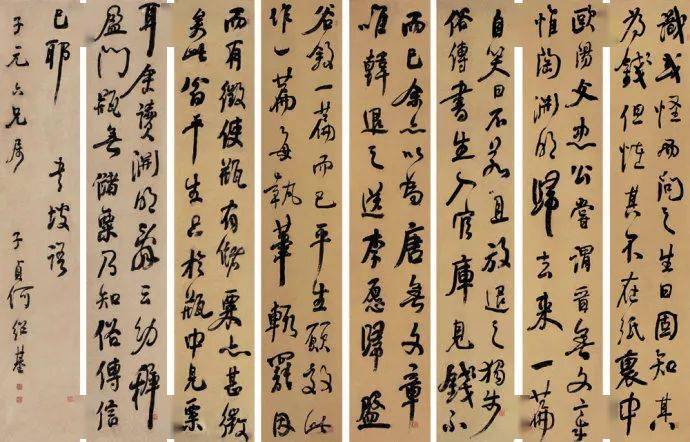 識或怪而問之生曰固知其
為錢但怪其不在紙裹中
歐陽文忠公嘗謂晉無文章
惟陶淵明歸去來一篇
自笑曰不若且放退之獨步
俗傳書生入官庫見錢不
而已余亦以為唐無文章
唯韓退之送李愿歸盤
谷敘一篇而已平生願效此
作一篇每執筆輒罷因
而有徵使瓶有儲粟亦甚微
矣此翁平生只於瓶中見粟
耳余讀淵明辭云幼稚
盈門瓶無儲粟乃知俗傳信
已耶 書坡語
子元六兄屬 子貞何紹基